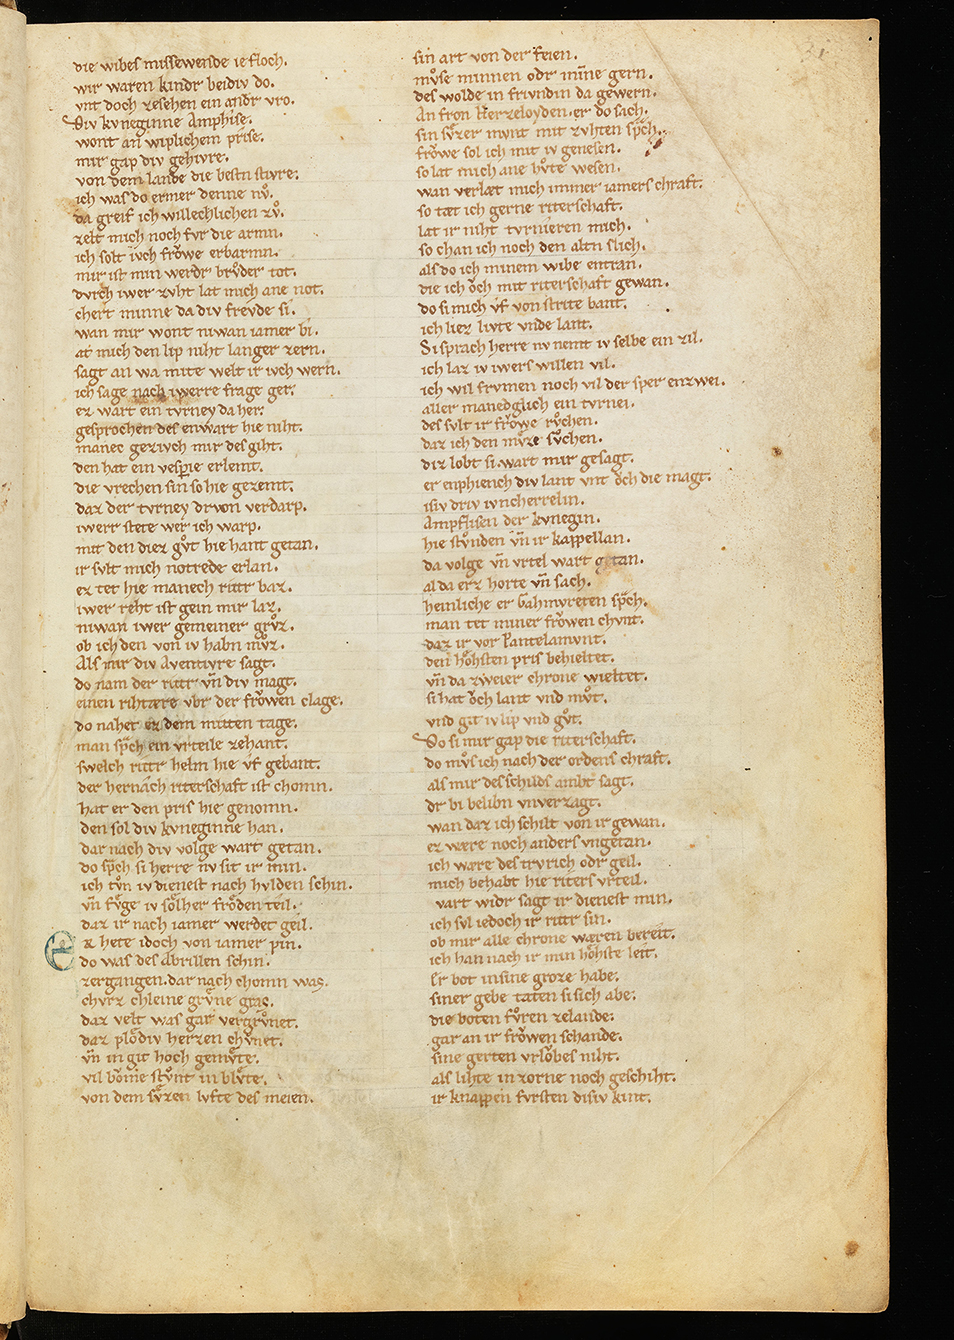 die wibes missewende ie floch.
wir waren kindr beidiv do.
vnt doch zesehen ein andr vro.
Div kvneginne Amphise.
wont an wiplichem prise.
mir gap div gehivre.
von dem lande die bestn stivre.
ich was do ermer denne nv̊.
da greif ich willechlichen zv̊.
zelt mich noch fvr die armn.
ich solt ivch frŏwe erbarmn.
mir ist min werdr brv̊der tot.
dvrch iwer zvht lat mich ane not.
chert minne da div frevde si.
wan mir wont niwan iamer bi.
at mich den lip niht langer zern.
sagt an wa mite welt ir ivch wern.
ich sage nach iwerre frage ger.
ez wart ein tvrney da her.
gesprochen des enwart hie niht.
manec gezivch mir des giht.
den hat ein vesp̱ie erlemt.
die vrechen sin̄ so hie gezemt.
daz der tvrney drvon verdarp.
iwerr stete wer ich warp.
mit den diez gv̊t hie hant getan.
ir svlt mich notrede erlan.
ez tet hie manech rittr baz.
iwer reht ist gein mir laz.
niwan iwer gemeiner grv̊z.
ob ich den von iv habn mv̊z.
Als mir div Aventivre sagt.
do nam der rittr vn̄ div magt.
einen rihtære vbr der frŏwen clage.
do nahet ez dem mitten tage.
man sp̄ch ein vrteile zehant.
swelch rittr helm hie vf gebant.
der hernâch riterschaft ist chomn.
hat er den pris hie genomn.
den sol div kvneginne han.
dar nach div volge wart getan.
do sp̄ch si herre nv sit ir min.
ich tv̊n iv dienest nach hvlden schin.
vn̄ fv̊ge iv sŏlher frŏden teil.
daz ir nach iamer werdet geil.
Er hete idoch von iamer pin.
do was des Abrillen schin.
zergangen. dar nach chomn was.
chvrz chleine grv̊ne gras.
daz velt was gar vergrv̊net.
daz plŏdiv herzen chv̊net.
vn̄ in git hoch gemv̊te.
vil bŏme stv̊nt in blv̊te.
von dem sv̊zen lvfte des meien.
sin art von der feien.
mv̊se minnen odr min̄e gern.
des wolde in frivndin da gewern.
An fron Herzeloyden. er do sach.
sin sv̊zer mvnt mit zvhten sp̄ch.
frŏwe sol ich mit iv genesen.
so lat mich ane hv̊te wesen.
wan verlæt mich immer iamers chraft.
so tæt ich gerne riterschaft.
lat ir niht tvrnieren mich.
so chan ich noch den altn slich.
als do ich minem wibe entran.
die ich ŏch mit riterschaft gewan.
do si mich vf von strite bant.
ich liez livte vnde lant.
Si sprach herre nv nemt iv selbe ein zil.
ich laz iv iwers willen vil.
ich wil frvmen noch vil der sper enzwei.
aller manedglich ein tvrnei.
des svlt ir frŏwe rv̊chen.
daz ich den mv̊ze sv̊chen.
diz lobt si. wart mir gesagt.
er enphiench div lant vnt ŏch die magt.
isiv driv ivncherrelin.
Ampflisen der kvnegin.
hie stv̊nden vn̄ ir kappellan.
da volge vn̄ vrtel wart getan.
al da erz horte vn̄ sach.
heinliche er Gahmvreten sp̄ch.
man tet miner frŏwen chvnt.
daz ir vor Pantelamvnt.
den hŏhsten pris behieltet.
vn̄ da zweier chrone wieltet.
si hat ŏch lant vnd mv̊t.
vnd git iv lip vnd gv̊t.
Do si mir gap die riterschaft.
do mv̊s ich nach der ordens chraft.
als mir des schilds ambt sagt.
dr bi belibn vnverzagt.
wan daz ich schilt von ir gewan.
ez were noch anders vngetan.
ich wære des trvrich odr geil.
mich behabt hie riters vrteil.
vart widr sagt ir dienest min.
ich svl iedoch ir rittr sin.
ob mir alle chrone wæren bereit.
ich han nach ir min hŏhste leit.
Er bot in sine groze habe.
siner gebe taten si sich abe.
die boten fv̊ren zelande.
gar an ir frŏwen schande.
sine gerten vrlŏbes niht.
als lihte in zorne noch geschiht.
ir knappen fvrsten disiv kint.